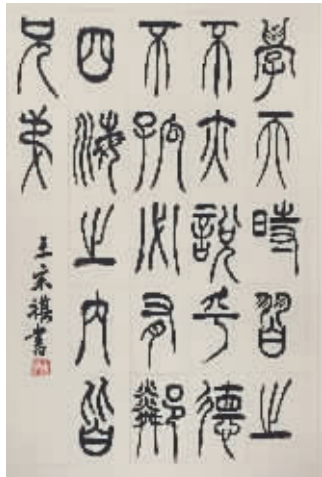 學而時習之
不亦說乎德
不孤必有鄰
四海之內皆
兄弟
王祺書